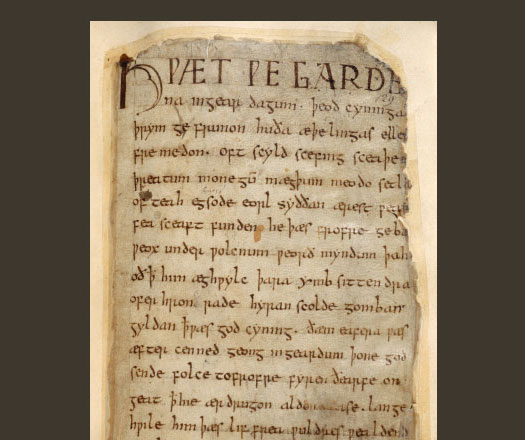 HǷÆT ǷE GARDE
na ingear dagum. þeod cyninga
þrym ge frunon huða æþelingas elle
fremedon. oft scyld scefing sceaþe
þreatum monegū mægþum meodo setla
of teah egsode eorl syððan ærest ƿear
fea sceaft funden he þæs frofre geba
ƿeox under ƿolcnum ƿeorð myndum þah
oð ꝥ him æghƿylc þara ymb sittendra
ofer hron rade hyran scolde gomban
gyldan ꝥ ƿæs god cyning. ðæm eafera ƿæs
æfter cenned geong ingeardum þone god
sende folce tofrofre fyren ðearfe on
geat ꝥ hie ær drugon lange
hƿile him þæs lif frea ƿuldres ƿealdend